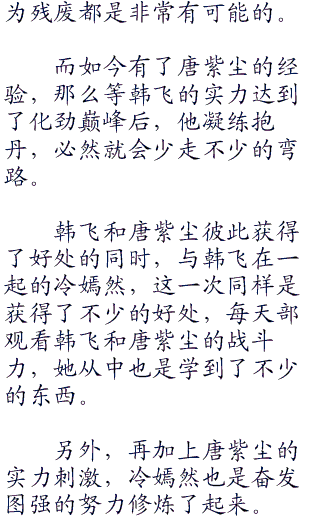 为残废都是非常有可能的。
而如今有了唐紫尘的经
验，那么等韩飞的实力达到
了化劲巅峰后，他凝练抱
丹，必然就会少走不少的弯
路。
韩飞和唐紫尘彼此获得
了好处的同时，与韩飞在一
起的冷嫣然，这一次同样是
获得了不少的好处，每天部
观看韩飞和唐紫尘的战斗
力，她从中也是学到了不少
的东西。
另外，再加上唐紫尘的
实力刺激，冷嫣然也是奋发
图强的努力修炼了起来。